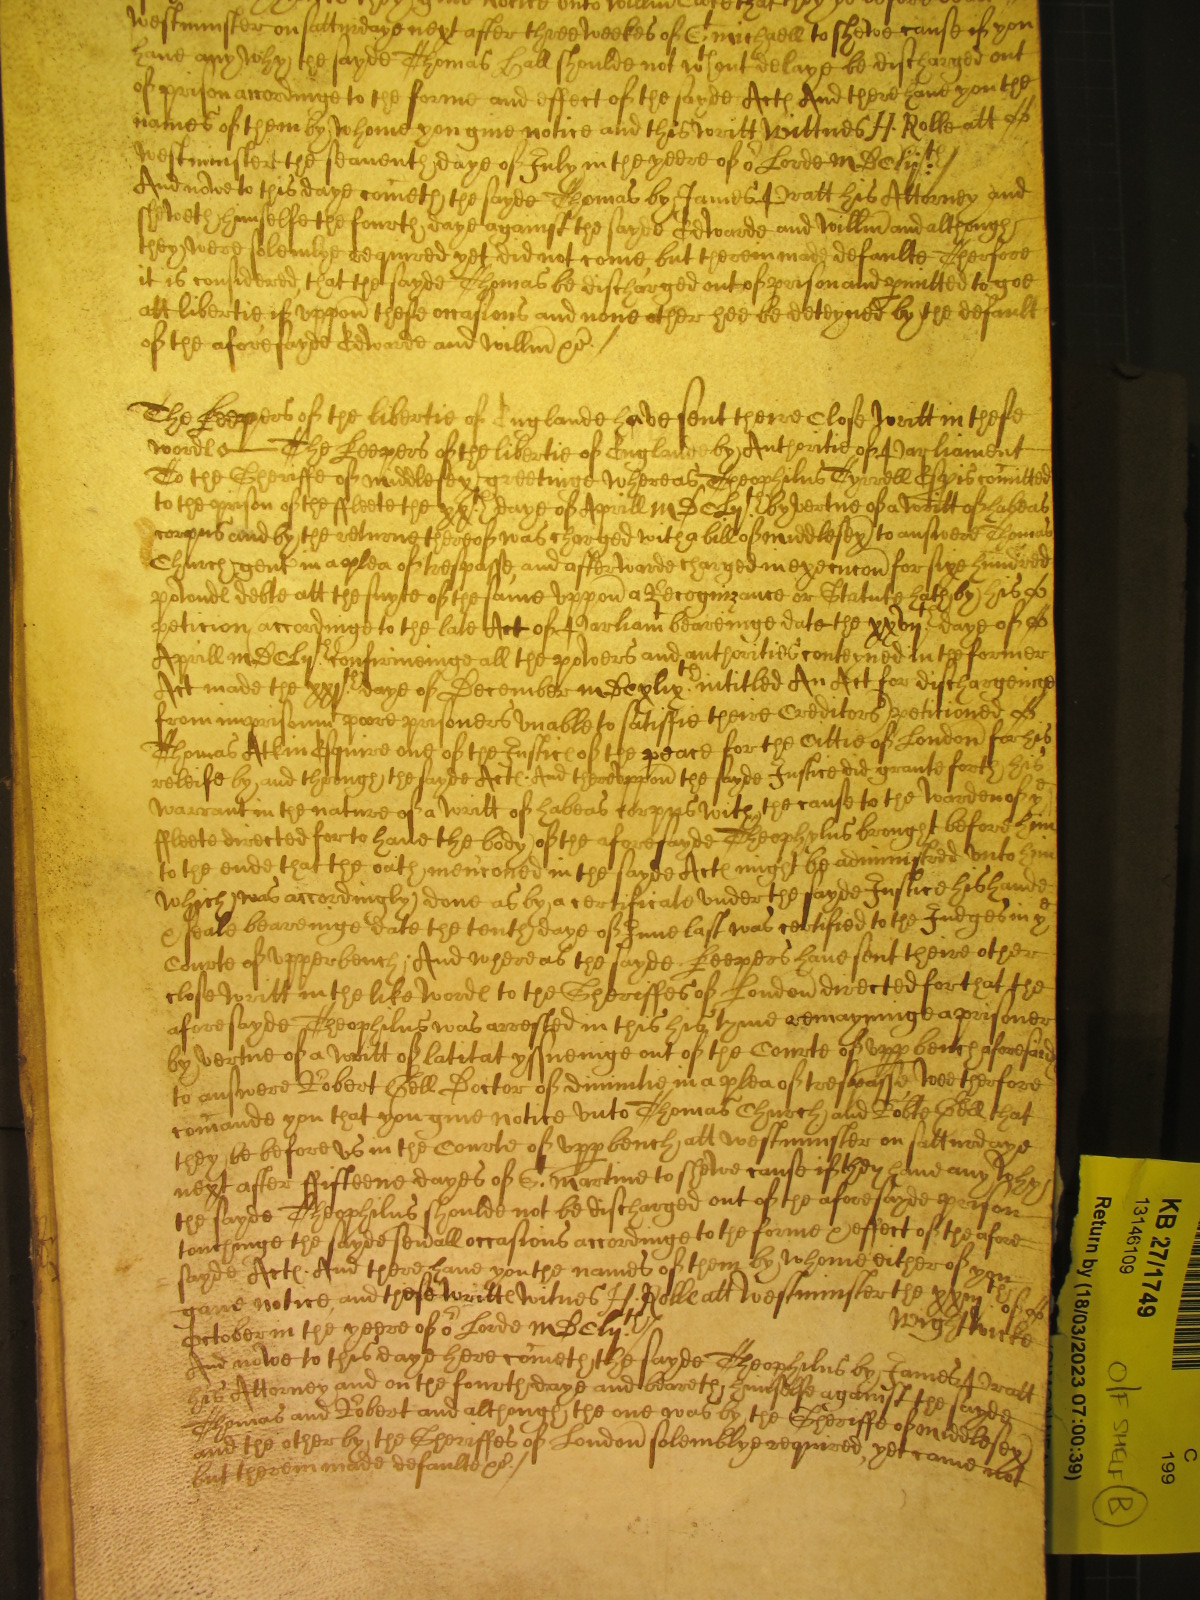 they give notice unto Willm that they be before
Westminster on satturdaye next after three weekes of St. Michaell to shewe cause if you
have any why the sayde Thomas Hall shoulde not wthout delaye be discharged out
of prison accordinge to the forme and effect of the sayde Act And there have you the
names of them by whome you give notice and this writt Wittnes H. Rolle att
Westminster the seaventh daye of July in the yeere of or Lorde MDCLijth
And nowe to this daye cometh the sayde Thomas by James Pratt his Attorney and
sheweth himselfe the fourth daye against the sayde Edwarde and Willm and although
they were solemlye required yet did not come but therein made defaulte Therfore
it is considered that the sayde Thomas be discharged out of prison and pmitted to goe
att libertie if uppon these occasions and none other hee be deteyned by the default
of the aforesayde Edwarde and Willm &c.
The Keepers of the libertie of Englande have sent theire Close writt in these
wordes The Keepers of the libertie of Englande by Authoritie of Parliament
To the Sheriffe of Middlesex greetinge whereas Theophilus Tyrrell Esq is comitted
to the prison of the ffleete the xxth daye of Aprill MDCLijth by vertue of a writt of habeas
corpus and by the returne thereof was charged with a bill of Middlesex to answere Thomas
Church gent in a plea of trespasse and afterwarde charged in execucon for sixe hundred
pounds debte att the suyte of the same uppon a Recognizance or Statute hath by his
peticion accordinge to the late Act of Parliamt beareinge date the xxvijth daye of
Aprill MDCLijth confirmeinge all the powers and authorities conteined in the former
Act made the xxjth daye of December MDCxlixth intitled An Act for dischargeinge
from imprisonmt poore prisoners unable to satisfie theire Creditors peticioned
Thomas Atkin Esquire one of the Justices of the peace for the Cittie of London for his
releife by and through the sayde Act. And thereuppon the sayde Justice did grante forth his
warrant in the nature of a writt of habeas corpus with the cause to the Warden of ye
ffleete directed for to have the body of the aforesayde Theophylus brought before him
to the ende that the oath mencioned in the sayde Act might be administred unto him
which was accordingly done as by a certificate under the sayde Justice his hande
& seale beareinge date the tenth daye of June last was certified to the Judges in ye
Courte of upperbench; And whereas the sayde Keepers have sent theire other
close writt in the like wordes to the Sheriffes of London directed for that the
aforesayde Theophilus was arrested in this his tyme remayninge a prisoner
by vertue of a writt of latitat yssueinge out of the Courte of upp bench aforesaid
to answere Robert Sell Doctor of divinitie in a plea of trespasse Wee therfore
comande you that you give notice unto Thomas Church and Robte Sell that
they be before us in the Courte of upp bench att Westminster on satturdaye
next after ffifteene dayes of St. Martine to shewe cause if they have any why
the sayde Theophilus shoulde not be discharged out of the aforesayde prison
touchinge the sayde sevall occasions accordinge to the forme & effect of the afore-
sayde Act. And there have you the names of them by whome either of you
gave notice, and these writts Witnes H. Rolle att Westminster the xxiijth of
October in the yeere of or Lorde MDCLijth
Wightwicke
And nowe to this daye here cometh the sayde Theophilus by James Pratt
his Attorney and on the fourth daye and beareth himselfe against the sayde
Thomas and Robert and although the one was by the Sheriffe of Middlesex
and the other by the Sheriffes of London solemblye required, yet came not
but therein made defaulte &c.
KB 27/1749
13146109
Return by (18/03/2023 07:00:39)
C
199
O/F SHELF B